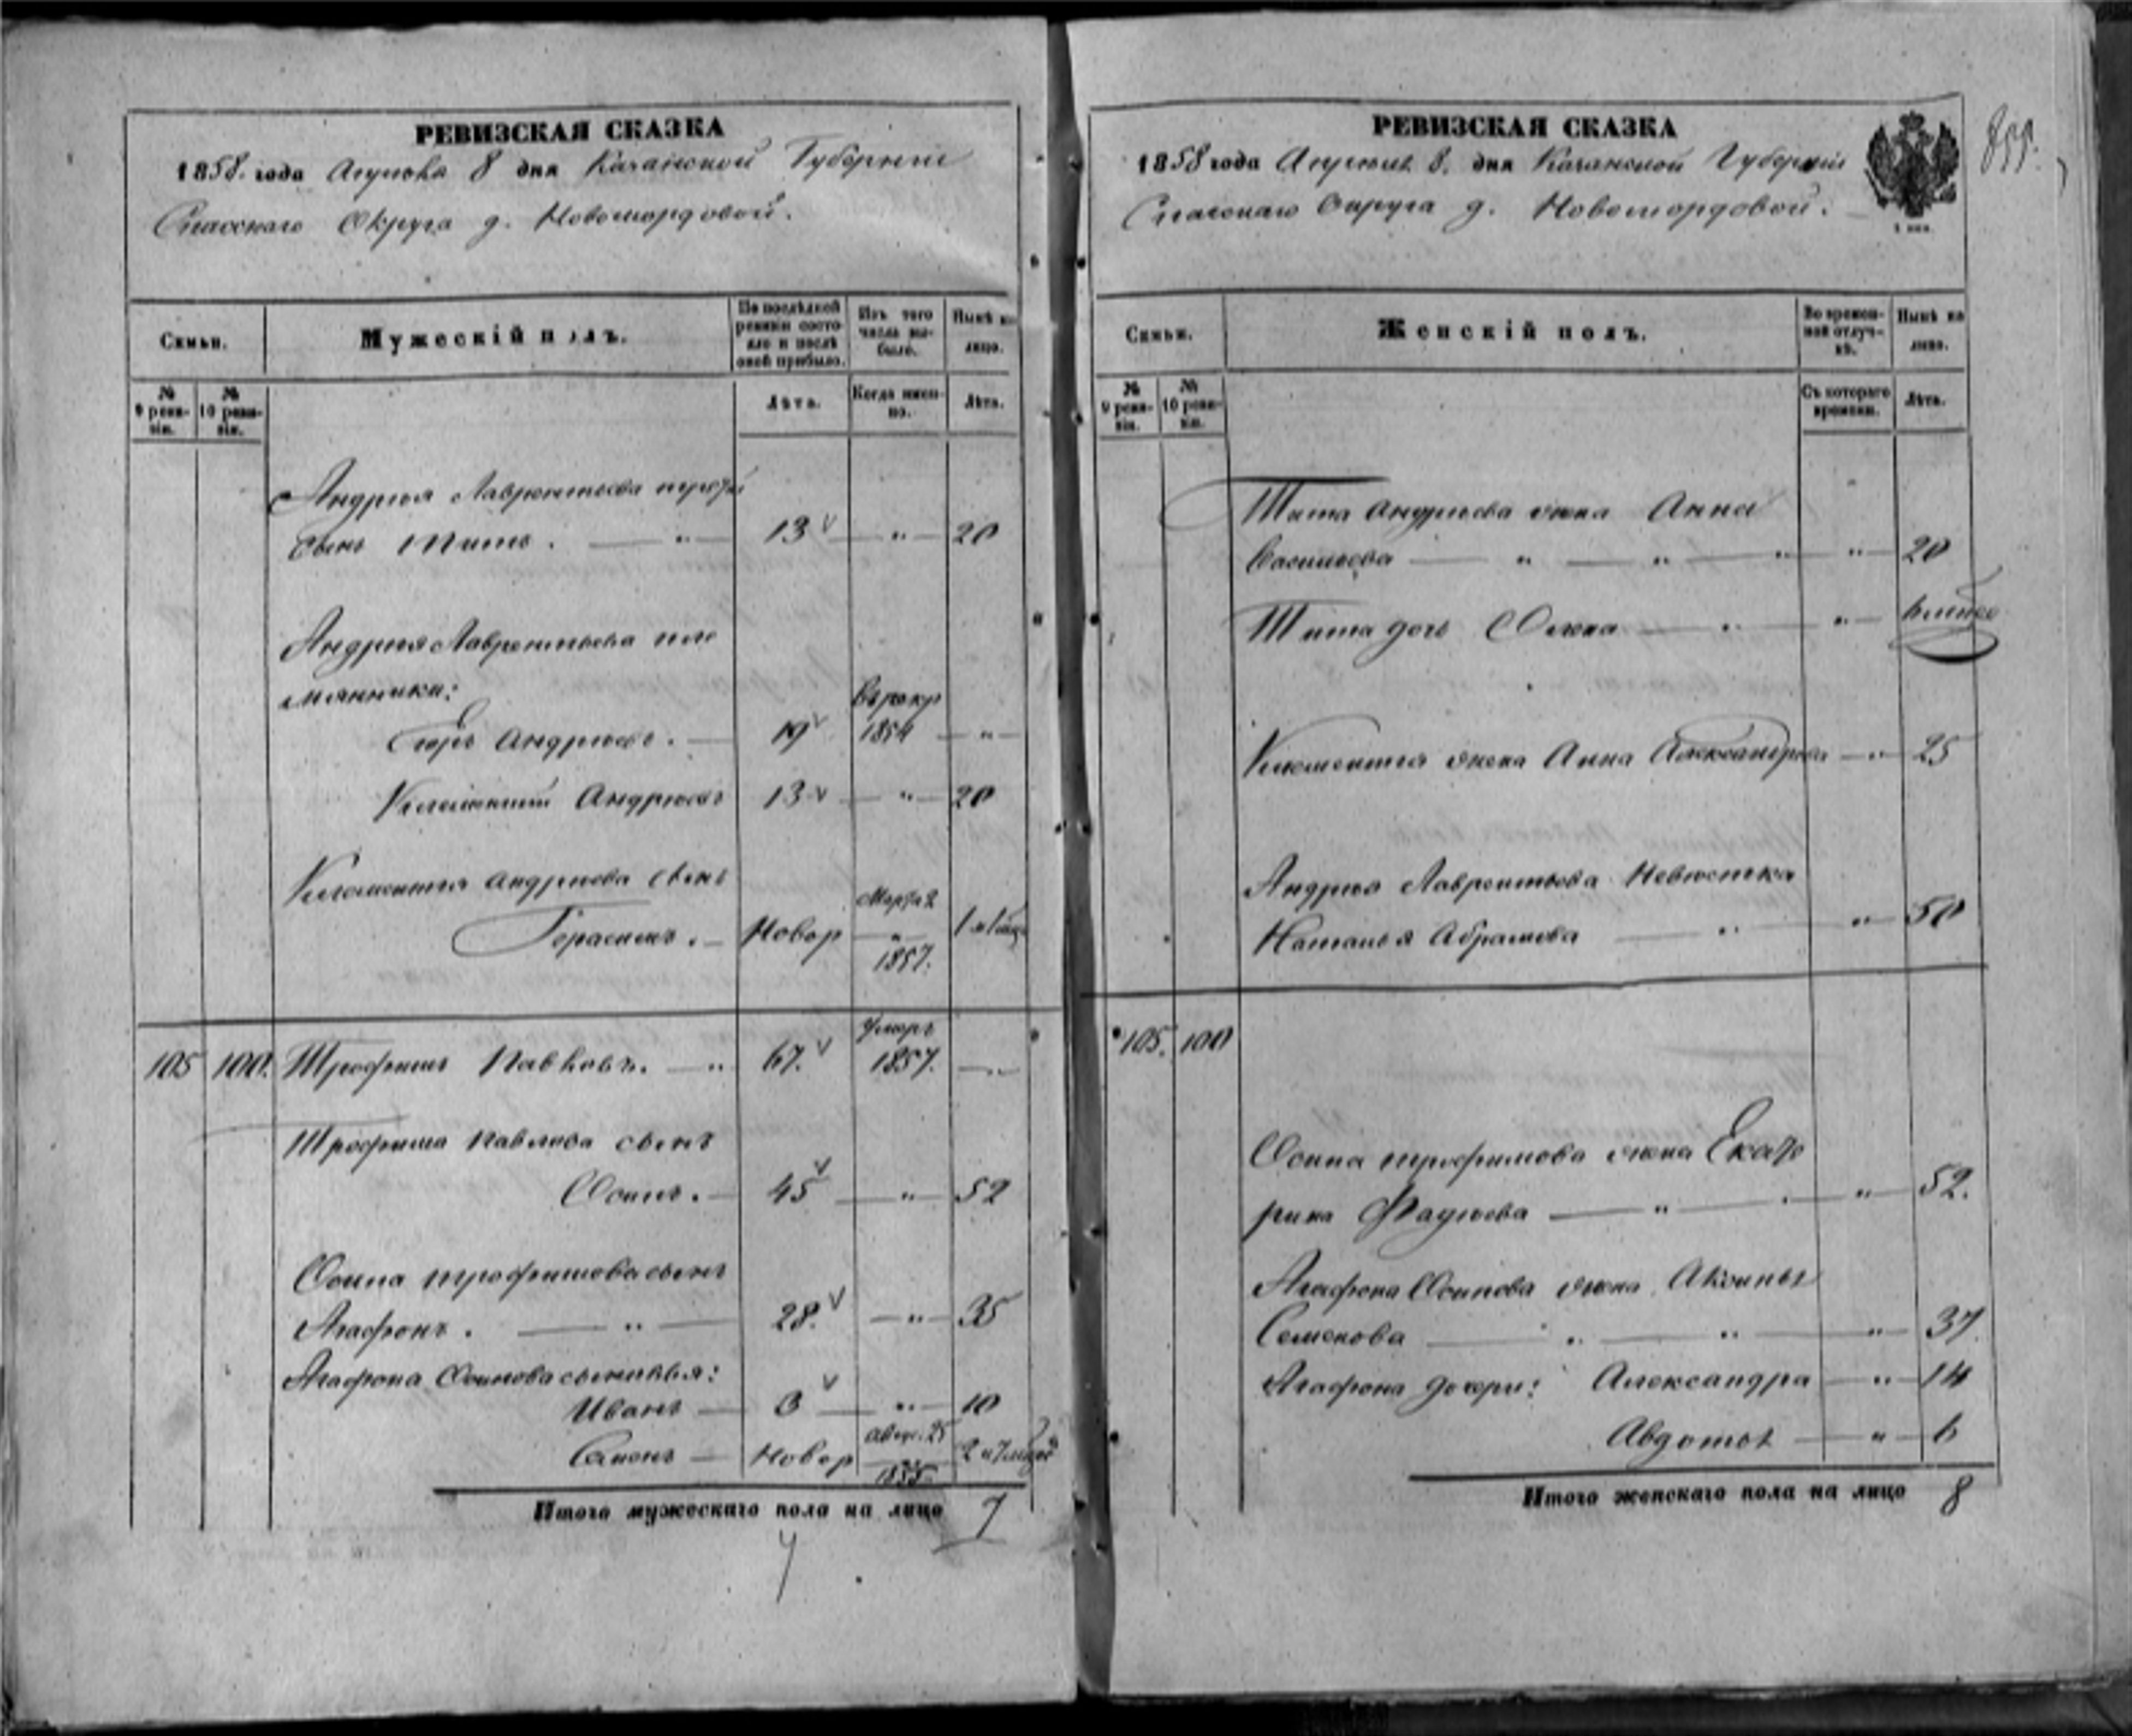 РЕВИЗСКАЯ СКАЗКА
1858. года Апреля 8 дня Казанской Губернии
Спасскаго Округа д. Новомордовой.
Семьи.
Мужескій полъ.
По послѣдней ревизіи состояло и послѣ оной прибыло.
Изъ того числа выбыло.
Нынѣ на лицо.
№ 9 ревизіи.
№ 10 ревизіи.
Лѣта.
Когда именно.
Лѣта.
Андрея Лаврентьева
сынъ Титъ. — " — 13 — " — 20
Андрея Лаврентьева пле
мянники:
Егоръ Андреевъ. — 19 1854 — " —
Климентий Андреевъ 13 — " — 20
Климентия Андреева сынъ
Герасимъ. — Новор 1857.
105 100. Трофимъ Павловъ. — " 67. умеръ 1857. — " —
Трофима Павлова сынъ
Осипъ. — 45 — " — 52
Осипа Трофимова сынъ
Агафонъ. — " — 28. — " — 35
Агафона Осипова сыновья:
Иванъ — 3 — " — 10
Семенъ — Новор Авгус. 25 1855
Итого мужескаго пола на лицо 7
РЕВИЗСКАЯ СКАЗКА
1858 года Апреля 8. дня Казанской Губернии
Спасскаго Округа д. Новомордовой.
1 коп.
855.
Семьи.
Женскій полъ.
Во временной отлучкѣ.
Нынѣ на лицо.
№ 9 ревизіи.
№ 10 ревизіи.
Съ котораго времени.
Лѣта.
Тита Андреева жена Анна
Васильева — " — " — " — " — 20
Тита дочь — " — " —
Климентия жена Анна Александрова — " — 25
Андрея Лаврентьева Невестка
Наталья Абрамова — " — " — 50
105. 100
Осипа Трофимова жена Екате
рина Фадеева — " — " — 52.
Агафона Осипова жена Аксинья
Семенова — " — " — " — 37.
Агафона дочери: Александра — " — 14
Авдотья — " — 6
Итого женскаго пола на лицо 8